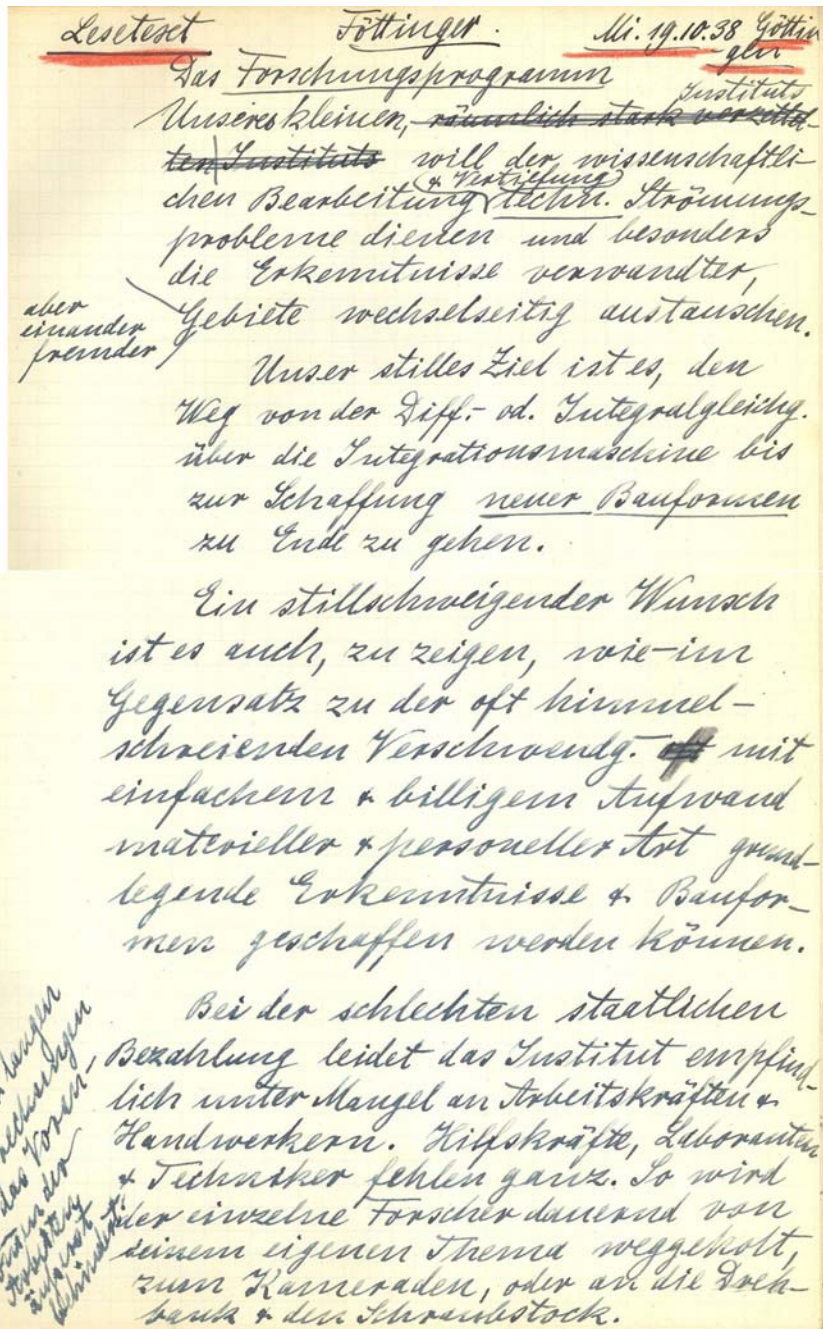 Lesetext Föttinger. Mi. 19.10.38 Göttin
gen
Das Forschungsprogramm
Instituts
Unseres kleinen, räumlich stark verzettel-
ten Instituts will der wissenschaftli-
(& Vertiefung)
chen Bearbeitung techn. Strömungs-
probleme dienen und besonders
die Erkenntnisse verwandter,
aber
einander
fremder
Gebiete wechselseitig austauschen.
Unser stilles Ziel ist es, den
Weg von der Diff.- od. Integralgleichg.
über die Integrationsmaschine bis
zur Schaffung neuer Bauformen
zu Ende zu gehen.
Ein stillschweigender Wunsch
ist es auch, zu zeigen, wie - im
Gegensatz zu der oft himmel-
schreienden Verschwendg. - mit
einfachem & billigem Aufwand
materieller & personeller Art grund-
legende Erkenntnisse & Baufor-
men geschaffen werden können.
Bei der schlechten staatlichen
Bezahlung leidet das Institut empfind-
lich unter Mangel an Arbeitskräften &
Handwerkern. Hilfskräfte, Laboranten
& Techniker fehlen ganz. So wird
der einzelne Forscher dauernd von
seinem eigenen Thema weggeholt,
zum Kameraden, oder an die Dreh-
bank & den Schraubstock.
langen
das Voran-
der
Arbeiten
äusserst
behindert